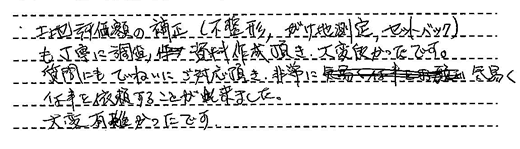 ・土地評価額の補正（不整形，がけ地測定，セットバック）
も丁寧に調査，資料作成頂き、大変良かったです。
質問にもていねいにご対応頂き、非常に気易く
仕事を依頼することが出来ました。
大変有難かったです